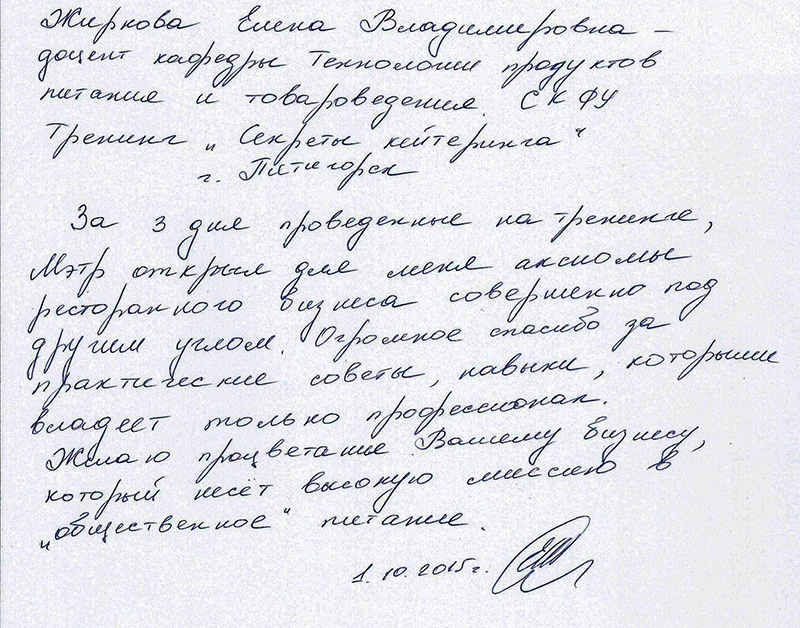 Жиркова Елена Владимировна –
доцент кафедры Технологии продуктов
питания и товароведения СКФУ
Тренинг „Секреты кейтеринга“
г. Пятигорск
За 3 дня проведенные на тренинге,
Мэтр открыл для меня аксиомы
ресторанного бизнеса совершенно под
другим углом. Огромное спасибо за
практические советы, навыки, которыми
владеет только профессионал.
Желаю процветание Вашему бизнесу,
который несёт высокую миссию в
„общественное“ питание.
1.10.2015г.